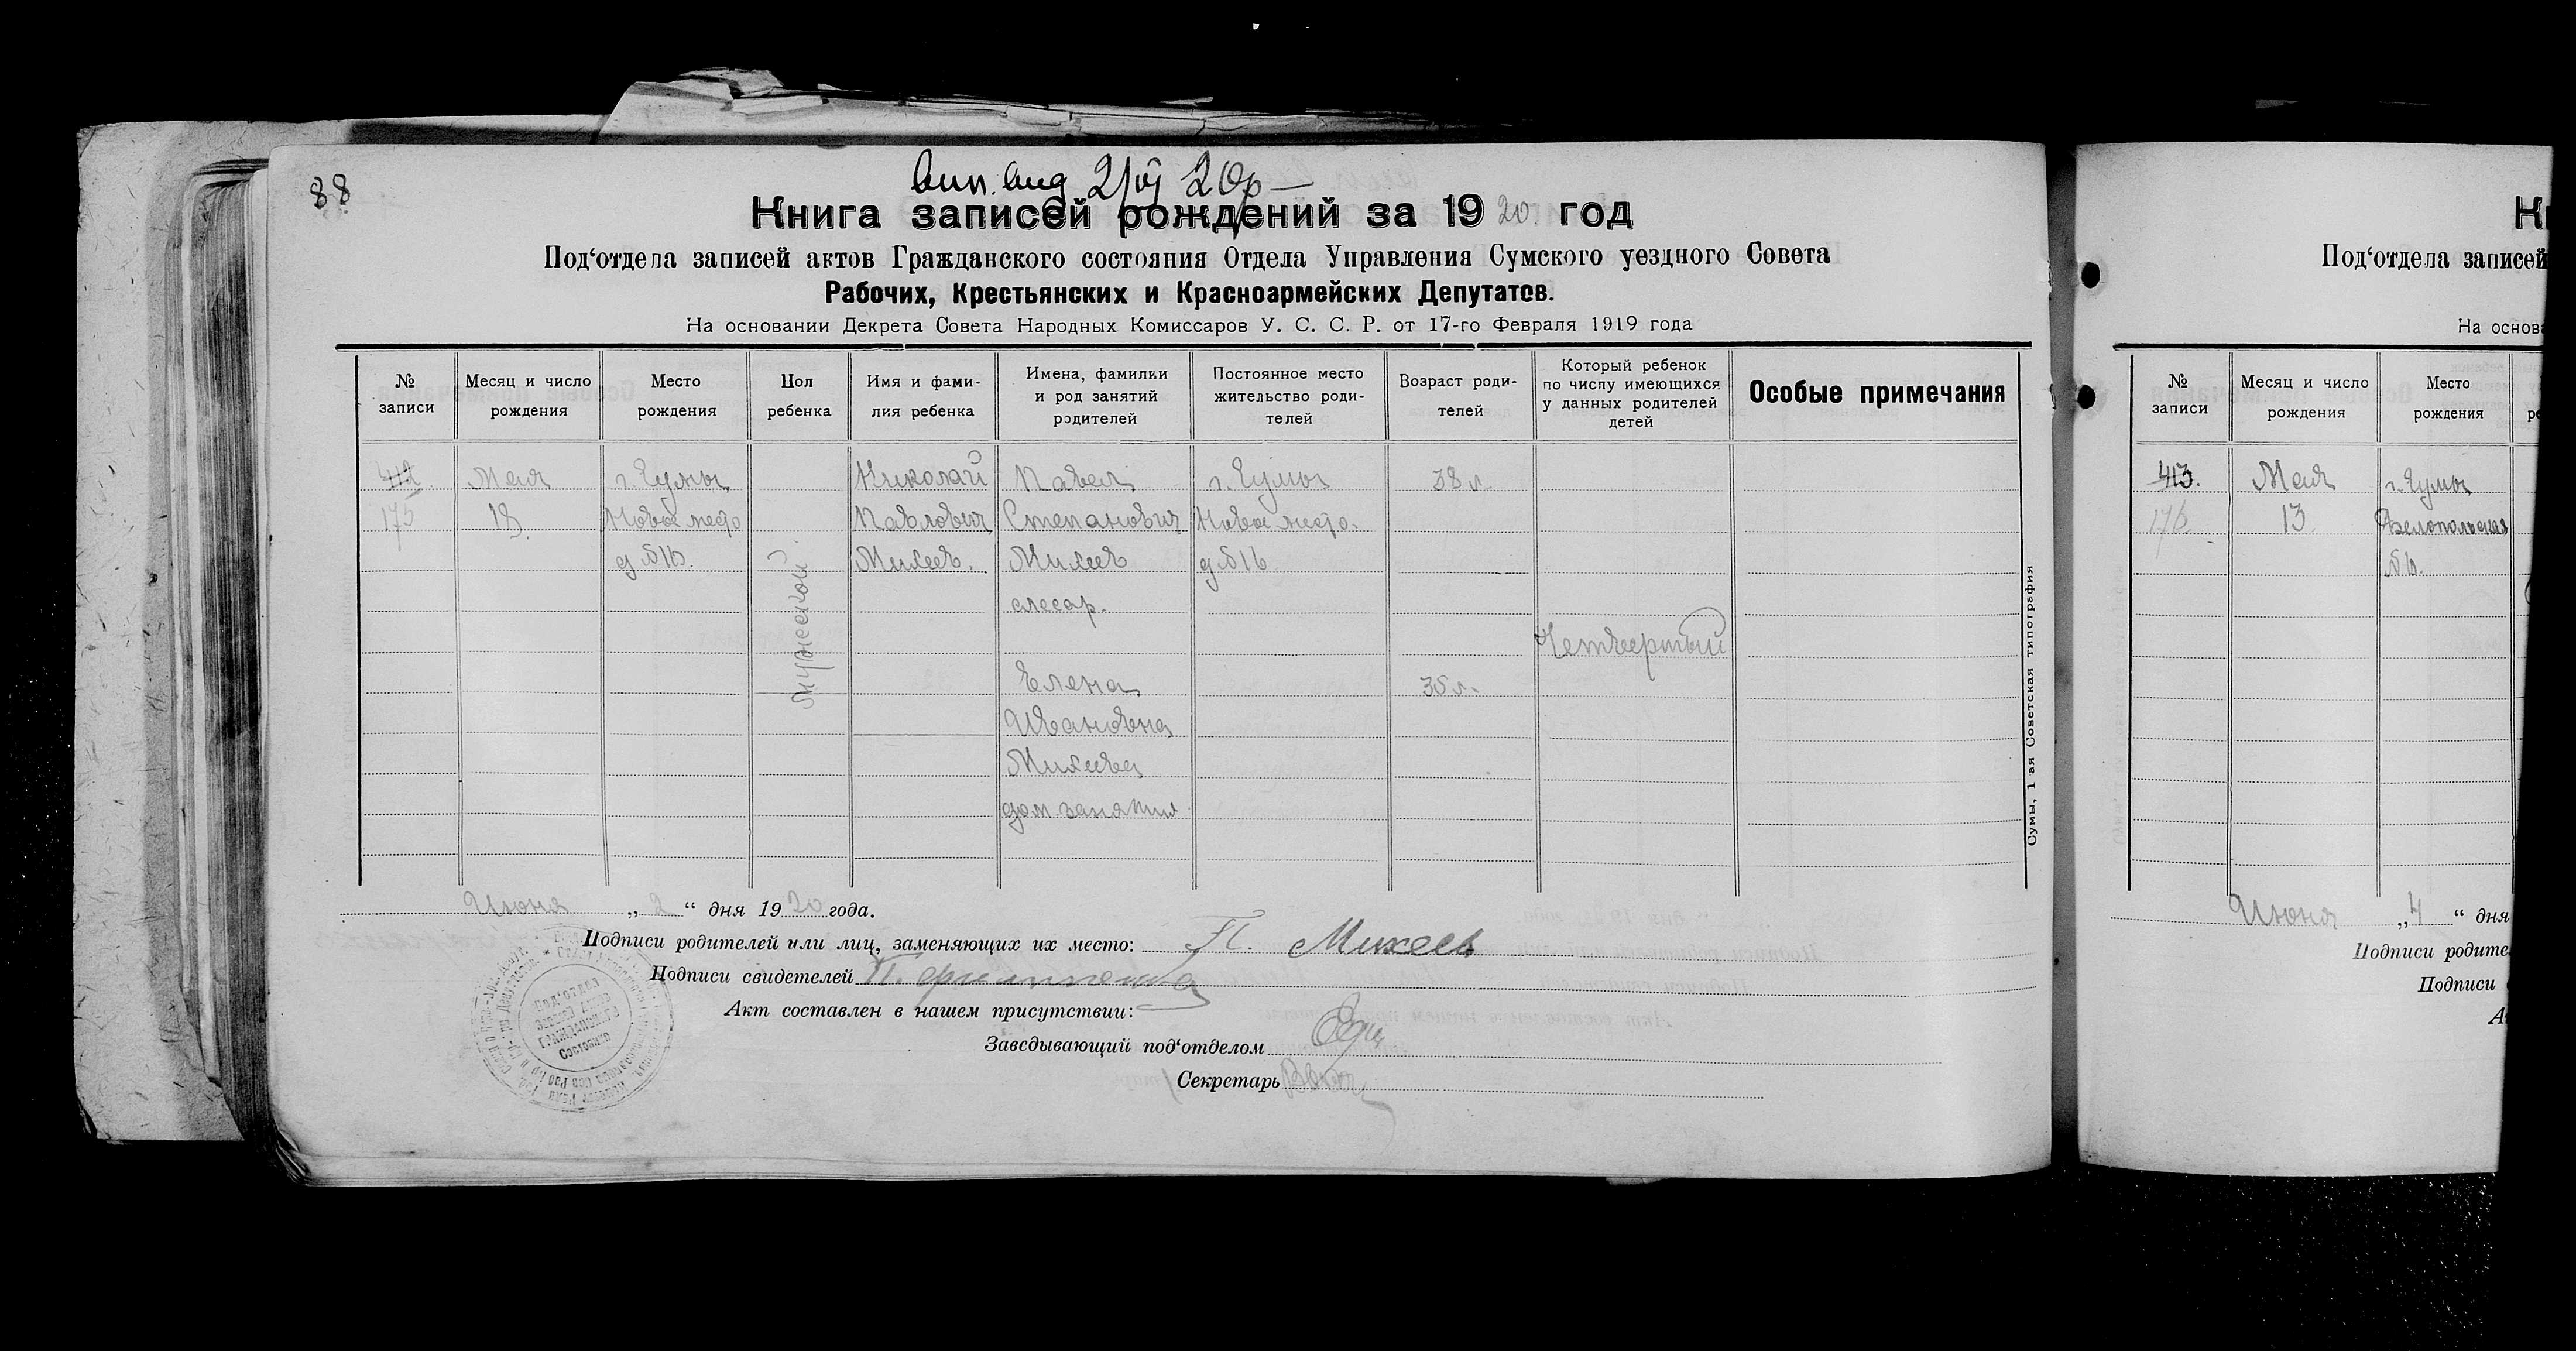 88
вып. вид 2/VI 20р —
Книга записей рождений за 1920 год
Под‘отдела записей актов Гражданского состояния Отдела Управления Сумского уездного Совета
Рабочих, Крестьянских и Красноармейских Депутатов.
На основании Декрета Совета Народных Комиссаров У. С. С. Р. от 17-го Февраля 1919 года
№ записи
Месяц и число рождения
Место рождения
Пол ребенка
Имя и фами-
лия ребенка
Имена, фамилии
и род занятий
родителей
Постоянное место
жительство роди-
телей
Возраст роди-
телей
Который ребенок
по числу имеющихся
у данных родителей
детей
Особые примечания
412.
175
Мая
18
г. Сумы
Новое место
д №16.
мужской
Николай
Павлович
Михеев.
Павел
Степанович
Михеев
слесар.
Елена
Ивановна
Михеева
дом занятия
г. Сумы
Новое место.
д №16
38 л.
35 л.
Четвертый
Июня „ 2 “ дня 1920 года.
Подписи родителей или лиц, заменяющих их место: П. Михеев
Подписи свидетелей
Акт составлен в нашем присутствии:
Заведывающий под‘отделом
Секретарь
Под‘отдел
записей актов
Гражданского
Состояния
Сумы, 1 ая Советская типография
Кн
Под‘отдела записей
На основа
№ записи
Месяц и число рождения
Место рождения
ре
413.
176.
Мая
13
г. Сумы
Белопольская
№
Июня „ 4 “ дня
Подписи родите
Подписи
А